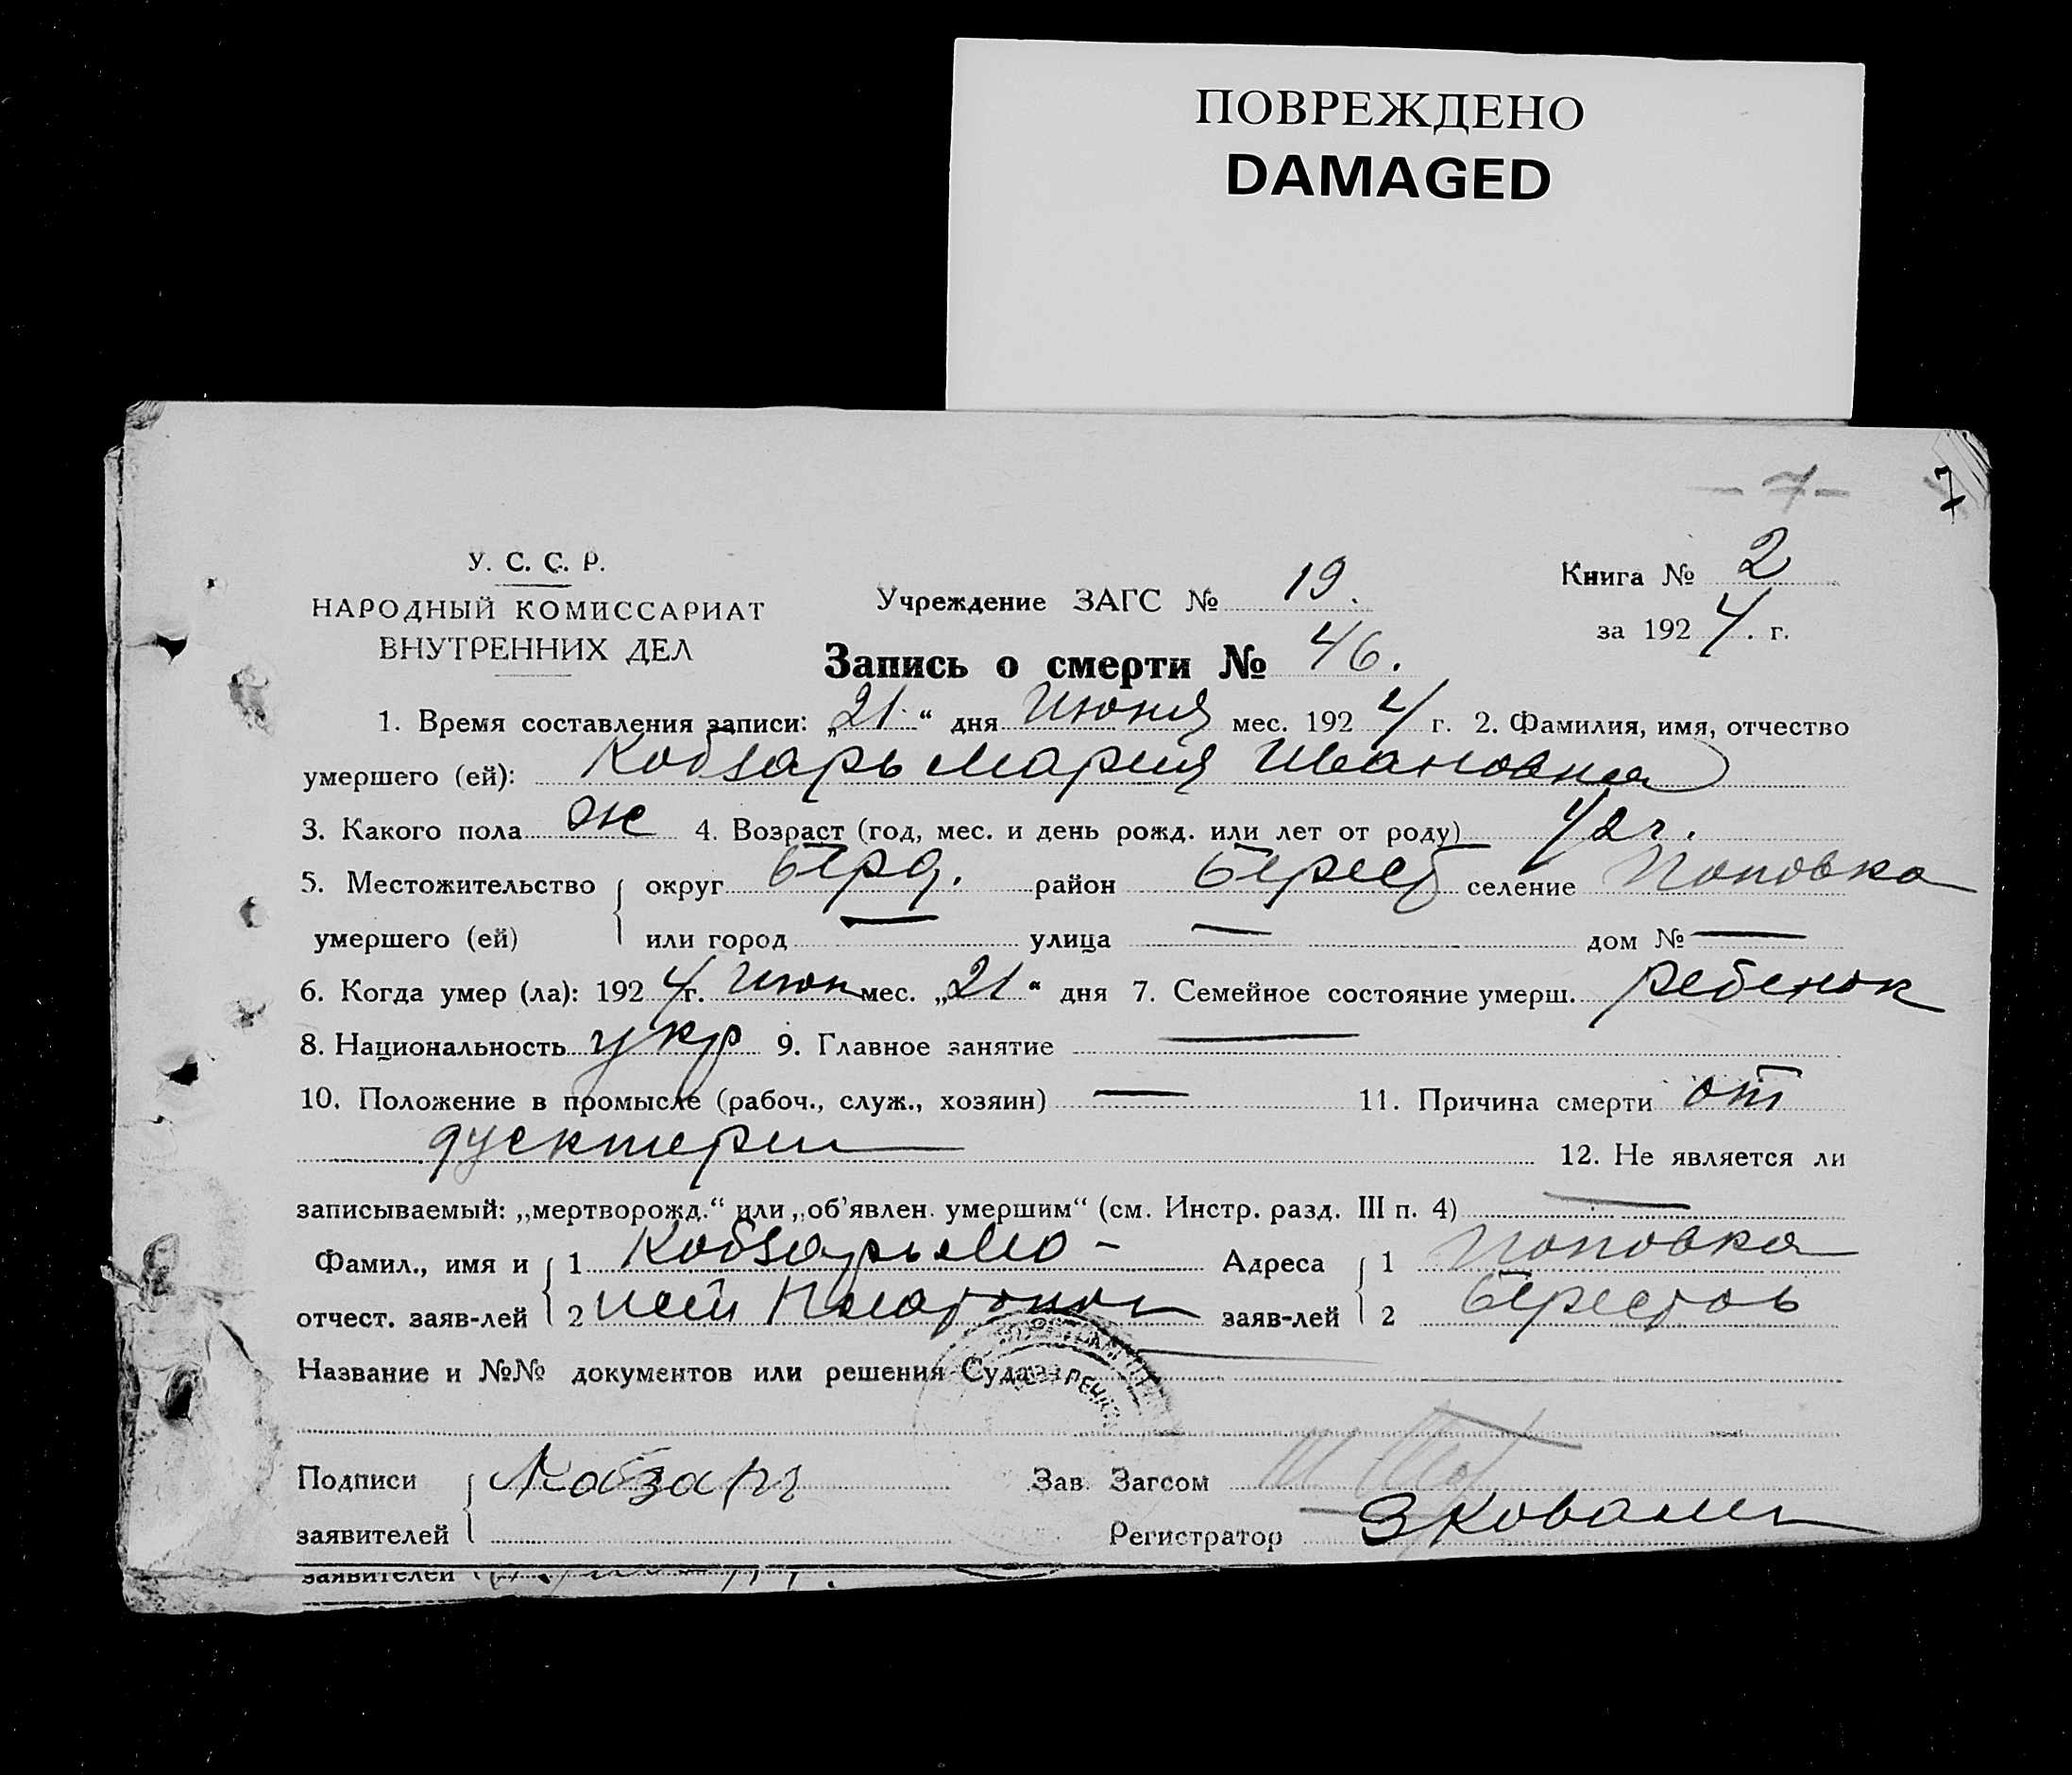 ПОВРЕЖДЕНО
DAMAGED
- 7 -
7
У. С. С. Р.
НАРОДНЫЙ КОМИССАРИАТ
ВНУТРЕННИХ ДЕЛ
Учреждение ЗАГС № 19.
Книга № 2
за 1924. г.
Запись о смерти № 46.
1. Время составления записи: „21.“ дня Июня мес. 1924 г. 2. Фамилия, имя, отчество
умершего (ей): Кобзарь Мария Ивановна
3. Какого пола ж 4. Возраст (год, мес. и день рожд. или лет от роду)
5. Местожительство округ Берд. район Берест селение Поповка
умершего (ей) или город — улица — дом № —
6. Когда умер (ла): 1924 г. Июн мес. „21“ дня 7. Семейное состояние умерш. ребенок
8. Национальность укр 9. Главное занятие —
10. Положение в промысле (рабоч., служ., хозяин) — 11. Причина смерти от
дуектерии
12. Не является ли
записываемый: „мертворожд.“ или „об'явлен. умершим“ (см. Инстр. разд. III п. 4) —
Фамил., имя и 1 Кобзарь Мо- Адреса 1 Поповка
отчест. заяв-лей 2 исей заяв-лей 2 Берестов
Название и №№ документов или решения Суда
Подписи Кобзарь Зав. Загсом
заявителей Регистратор
заявителей